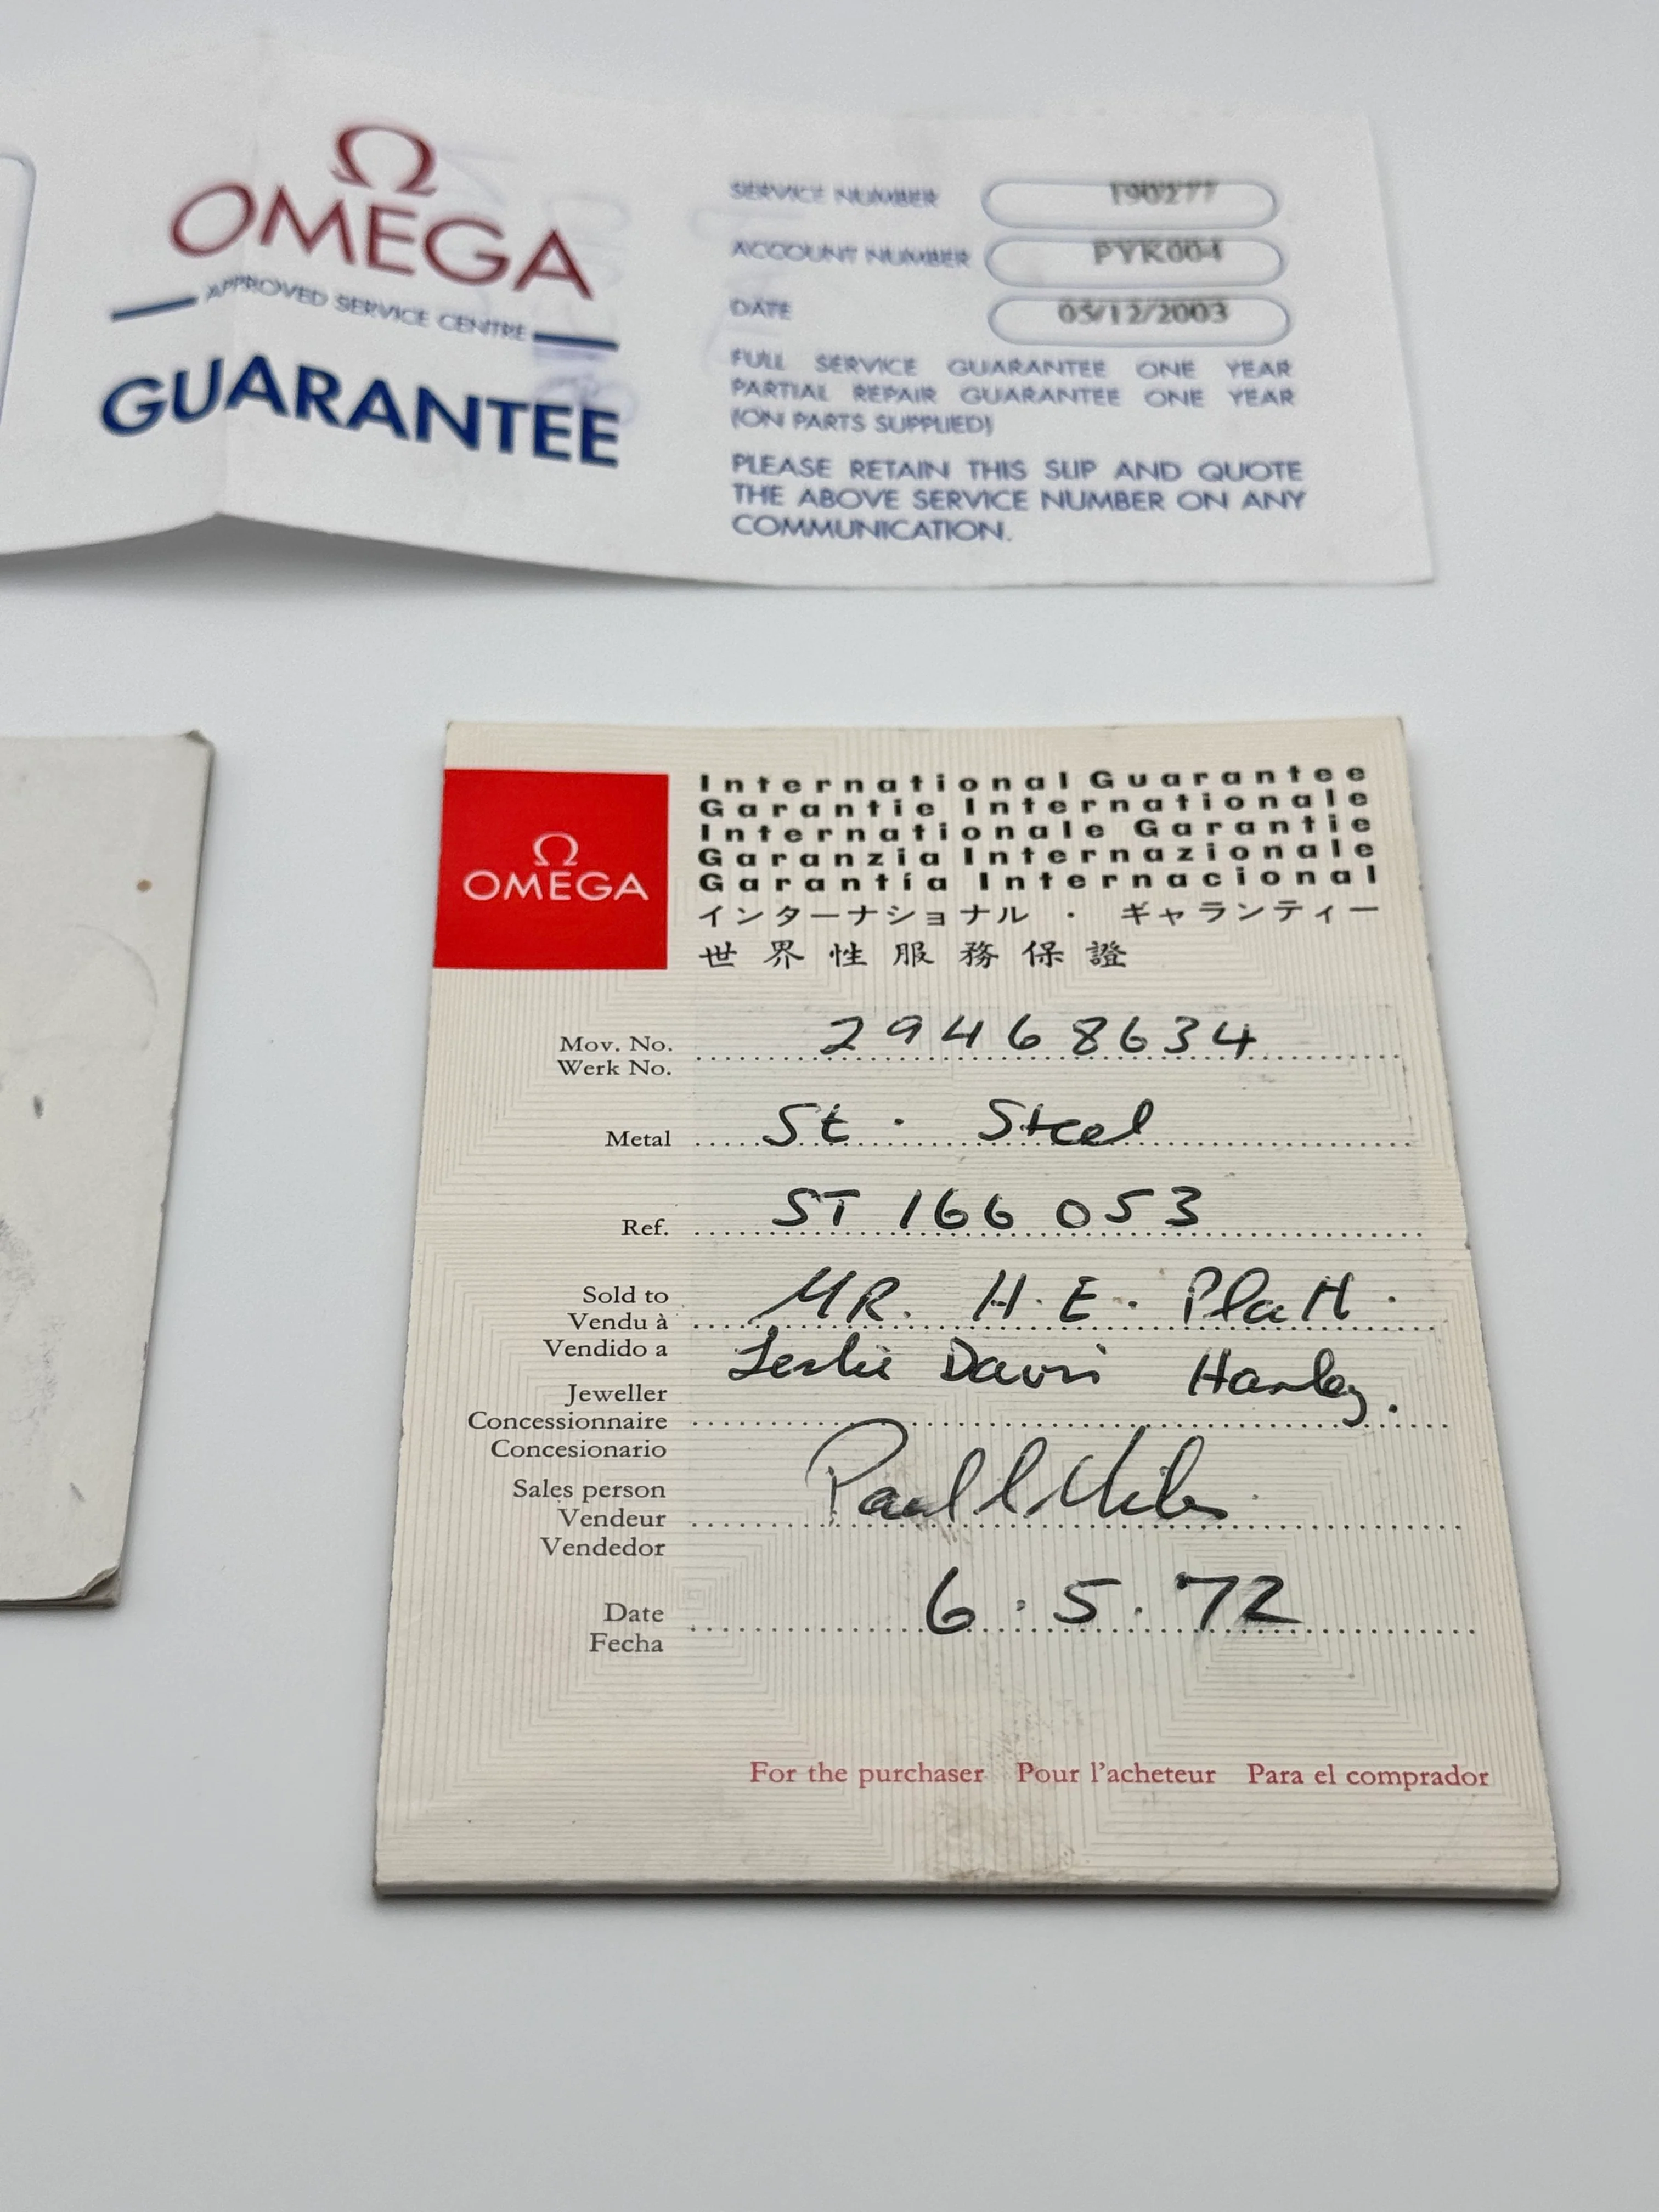 Ω
OMEGA
APPROVED SERVICE CENTRE
GUARANTEE
SERVICE NUMBER 190277
ACCOUNT NUMBER PYK004
DATE 05/12/2003
FULL SERVICE GUARANTEE ONE YEAR
PARTIAL REPAIR GUARANTEE ONE YEAR
(ON PARTS SUPPLIED)
PLEASE RETAIN THIS SLIP AND QUOTE
THE ABOVE SERVICE NUMBER ON ANY
COMMUNICATION.
Ω
OMEGA
International Guarantee
Garantie Internationale
Internationale Garantie
Garanzia Internazionale
Garantía Internacional
インターナショナル · ギャランティー
世界性服務保證
Mov. No. 29468634
Werk No.
Metal St. Steel
Ref. ST 166 053
Sold to
Vendu à MR. H.E. Platt.
Vendido a
Jeweller Leslie Davis Hanley.
Concessionnaire
Concesionario
Sales person Paul
Vendeur
Vendedor
Date 6.5.72
Fecha
For the purchaser Pour l'acheteur Para el comprador